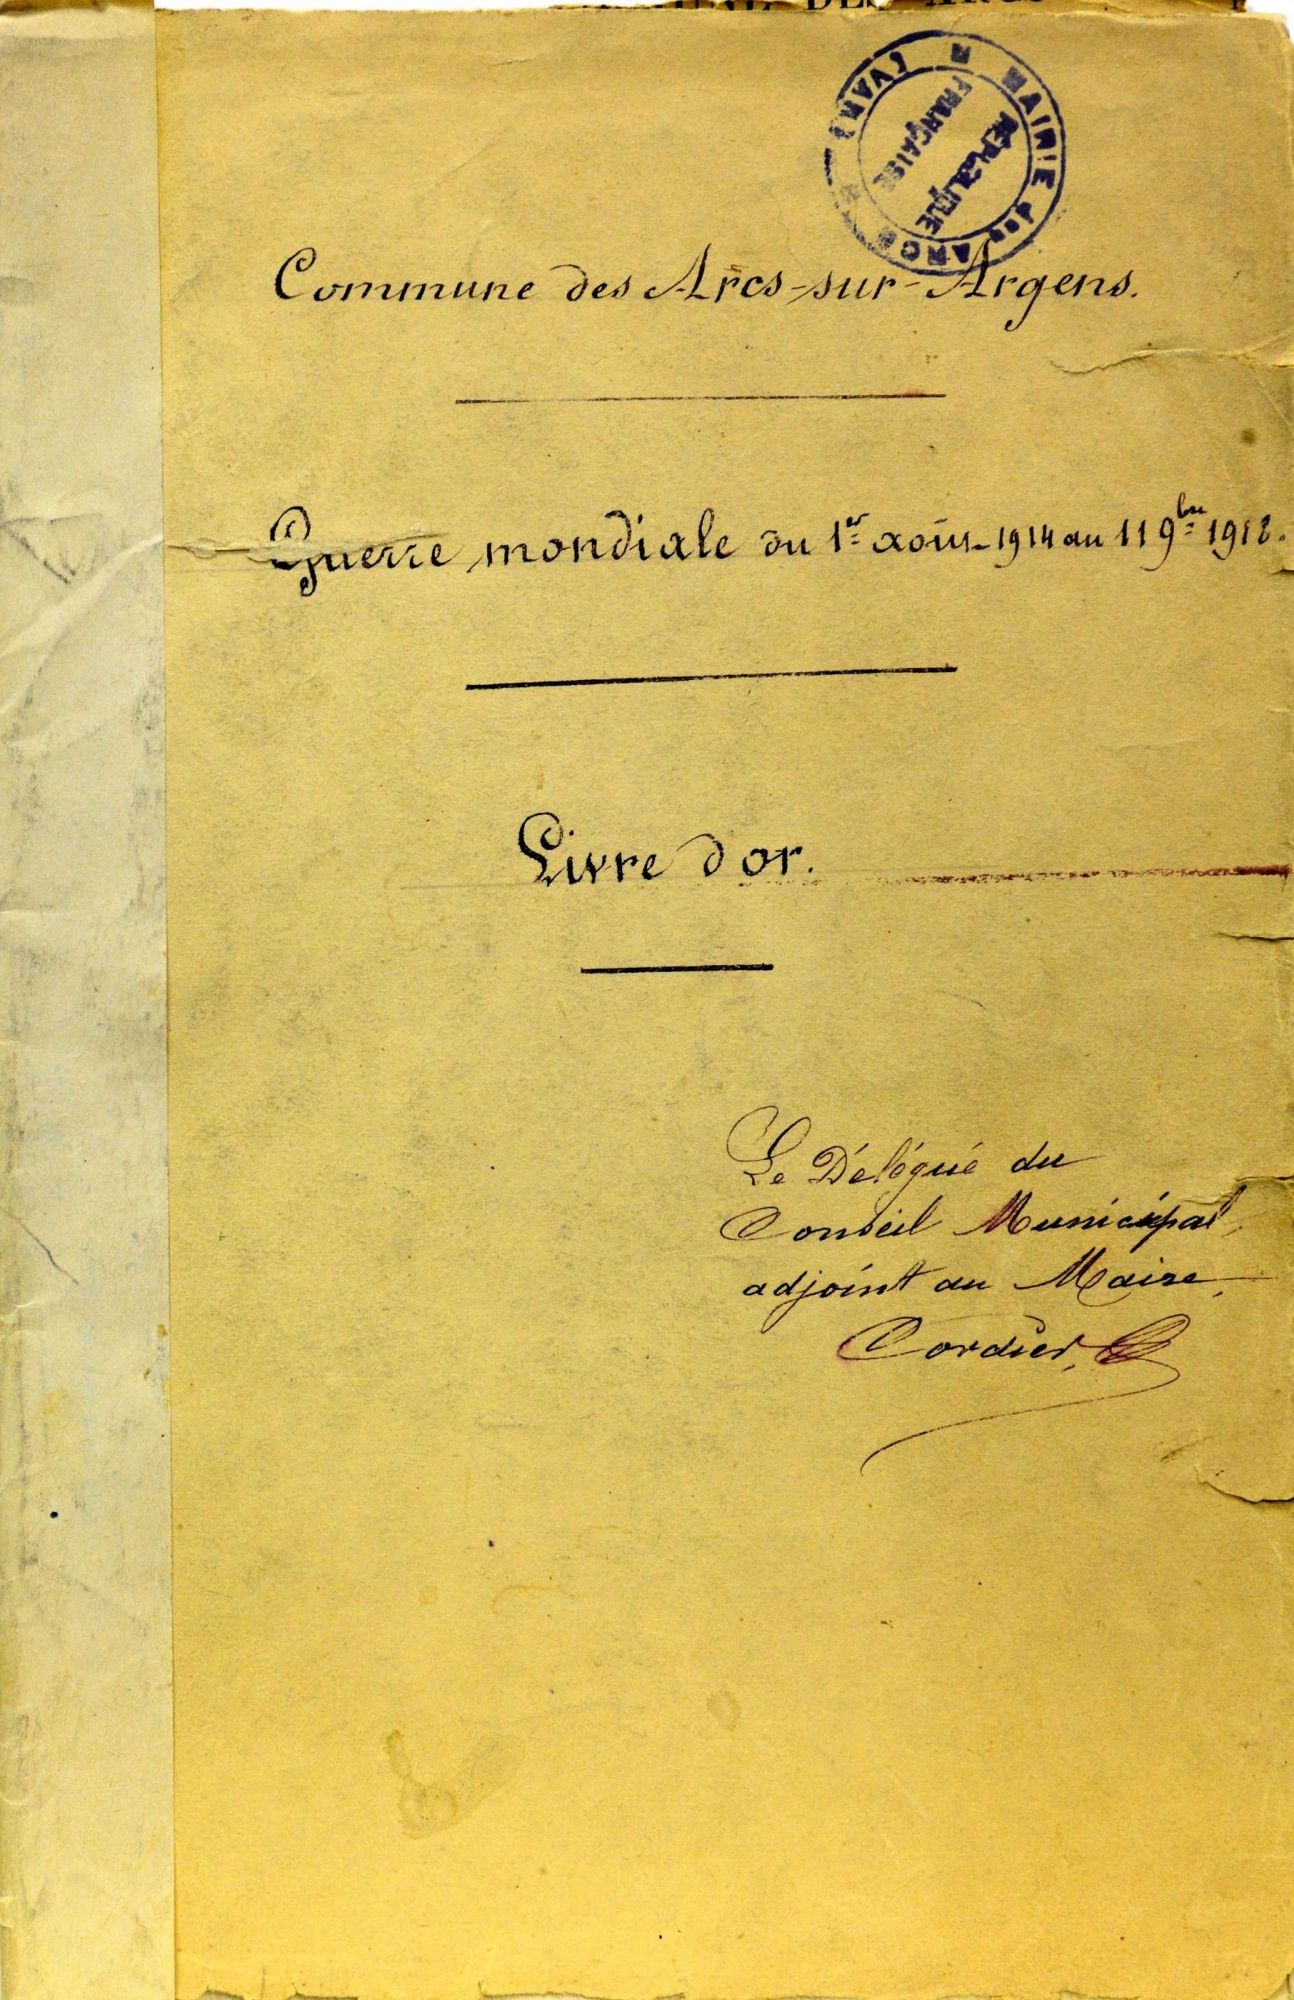 DES ARCS
MAIRIE des ARCS
(VAR)
RÉPUBLIQUE
FRANÇAISE
Commune des Arcs-sur-Argens.
Guerre mondiale du 1er août 1914 au 11 9bre 1918.
Livre d'or.
Le Délégué du
Conseil Municipal,
adjoint au Maire,
Cordier,